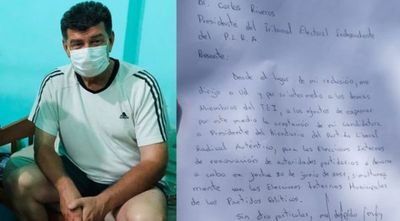 Sr. Carlos Riveros
Presidente del Tribunal Electoral Independiente
del P.L.R.A
Presente:
Desde el lugar de mi reclusión, me
dirijo a Ud y por su intermedio a los demás
Miembros del T.E.I, a los efectos de expresar
por este medio la aceptación de mi Candidatura
a Presidente del Directorio del Partido Liberal
Radical Auténtico, para las Elecciones Internas
de renovación de autoridades partidarias a llevarse
a cabo en fecha 20 de junio de 2021, simultanea
mente con las Elecciones Internas Municipales
de los Partidos Políticos.
Sin otro particular, me despido
adidas